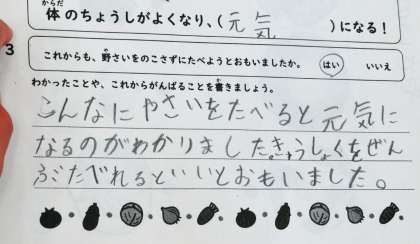 からだ
体のちょうしがよくなり、(元気)になる!
3
これからも、野さいをのこさずにたべようとおもいましたか。 はい いいえ
わかったことや、これからがんばることを書きましょう。
こんなにやさいをたべると元気に
なるのがわかりました。きゅうしょくをぜん
ぶたべれるといいとおもいました。